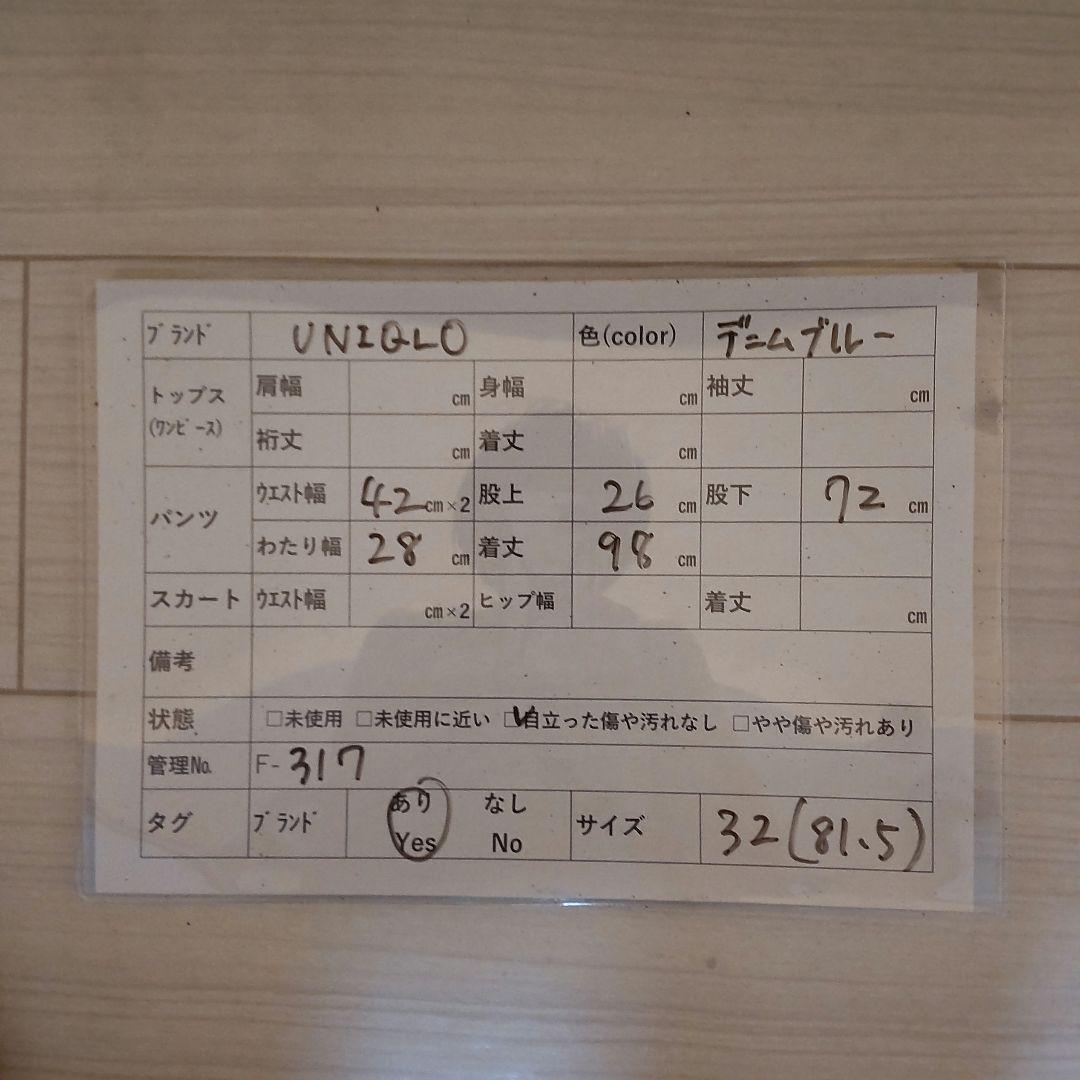 ブランド UNIQLO 色(color) デニムブルー
トップス 肩幅 cm 身幅 cm 袖丈 cm
(ワンピース) 裄丈 cm 着丈 cm
パンツ ウエスト幅 42cm×2 股上 26 cm 股下 72 cm
わたり幅 28 cm 着丈 98 cm
スカート ウエスト幅 cm×2 ヒップ幅 着丈 cm
備考
状態 □未使用 □未使用に近い ☑目立った傷や汚れなし □やや傷や汚れあり
管理No. F-317
タグ ブランド あり Yes なし No サイズ 32(81.5)